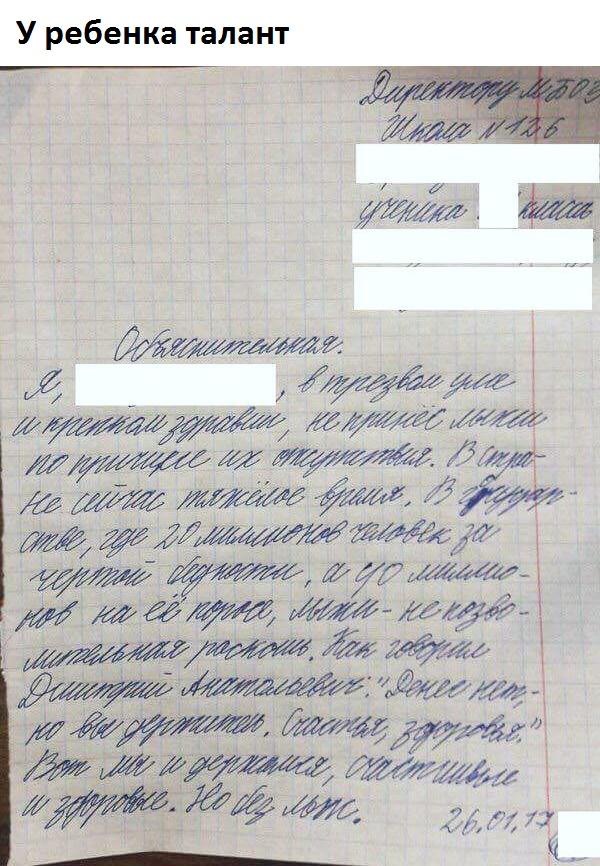 У ребенка талант
Директору МБОУ
Школа №126
ученика класса
Объяснительная.
Я, , в трезвом уме
и крепком здравии, не принёс лыжи
по причине их отсутствия. В стра-
не сейчас тяжёлое время. В государ-
стве, где 20 миллионов человек за
чертой бедности, а 90 миллио-
нов на её пороге, лыжи - не позво-
лительная роскошь. Как говорил
Дмитрий Анатольевич: "Денег нет,-
но вы держитесь. Счастья, здоровья."
Вот мы и держимся, счастливые
и здоровые. Но без лыж.
26.01.17